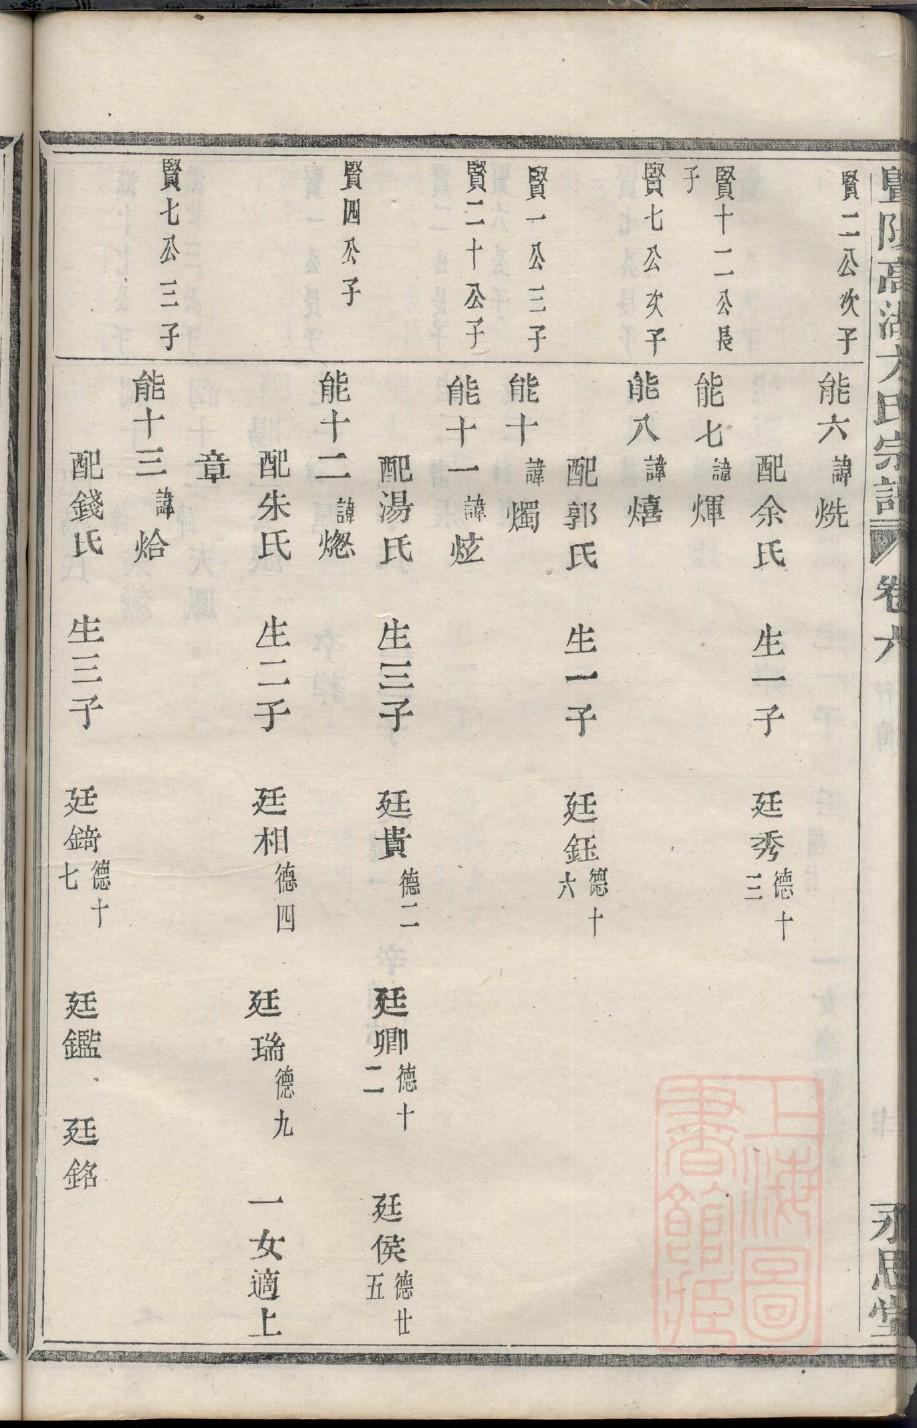 暨陽高湖方氏宗譜 卷六 永思堂
賢二公次子
能六諱烑
配余氏 生一子 廷秀德十三
賢十二公長子
能七諱煇
賢七公次子
能八諱熺
配郭氏 生一子 廷鈺德十六
賢一公三子
能十諱燭
賢二十公子
能十一諱炫
配湯氏 生三子 廷貴德二 廷卿德十二 廷侯德廿五
賢四公子
能十二諱燃
配朱氏 生二子 廷相德四 廷瑞德九 一女適上
章
賢七公三子
能十三諱烚
配錢氏 生三子 廷錡德十七 廷鑑 廷銘
上海圖書館藏